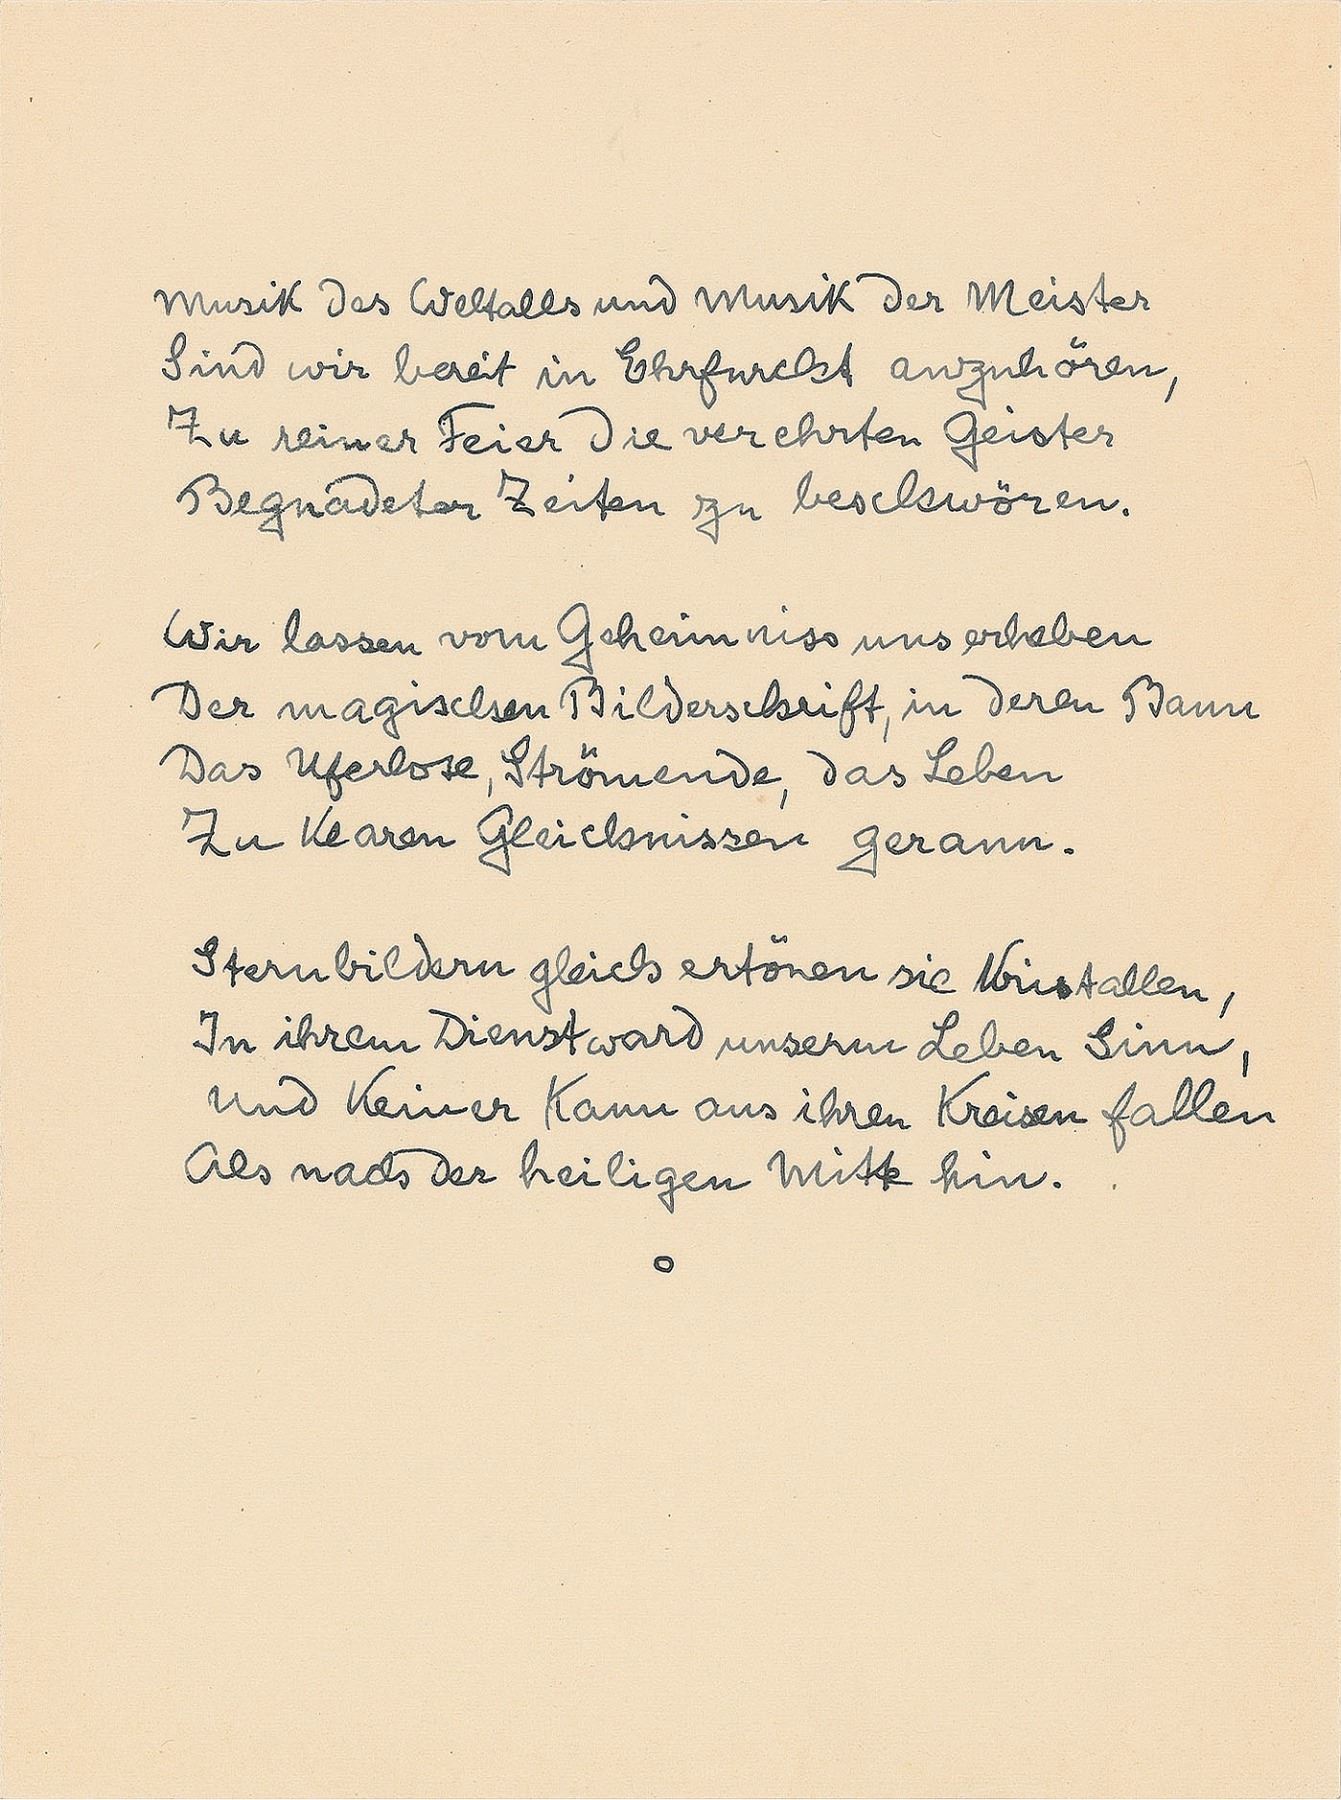 Musik des Weltalls und Musik der Meister
Sind wir bereit in Ehrfurcht anzuhören,
Zu reiner Feier die verehrten Geister
Begnadeter Zeiten zu beschwören.
Wir lassen vom Geheimniss uns erheben
Der magischen Bilderschrift, in deren Bann
Das Uferlose, Strömende, das Leben
Zu klaren Gleichnissen gerann.
Sternbildern gleich ertönen sie kristallen,
In ihrem Dienst ward unserm Leben Sinn,
Und keiner kann aus ihren Kreisen fallen
Als nach der heiligen Mitte hin.